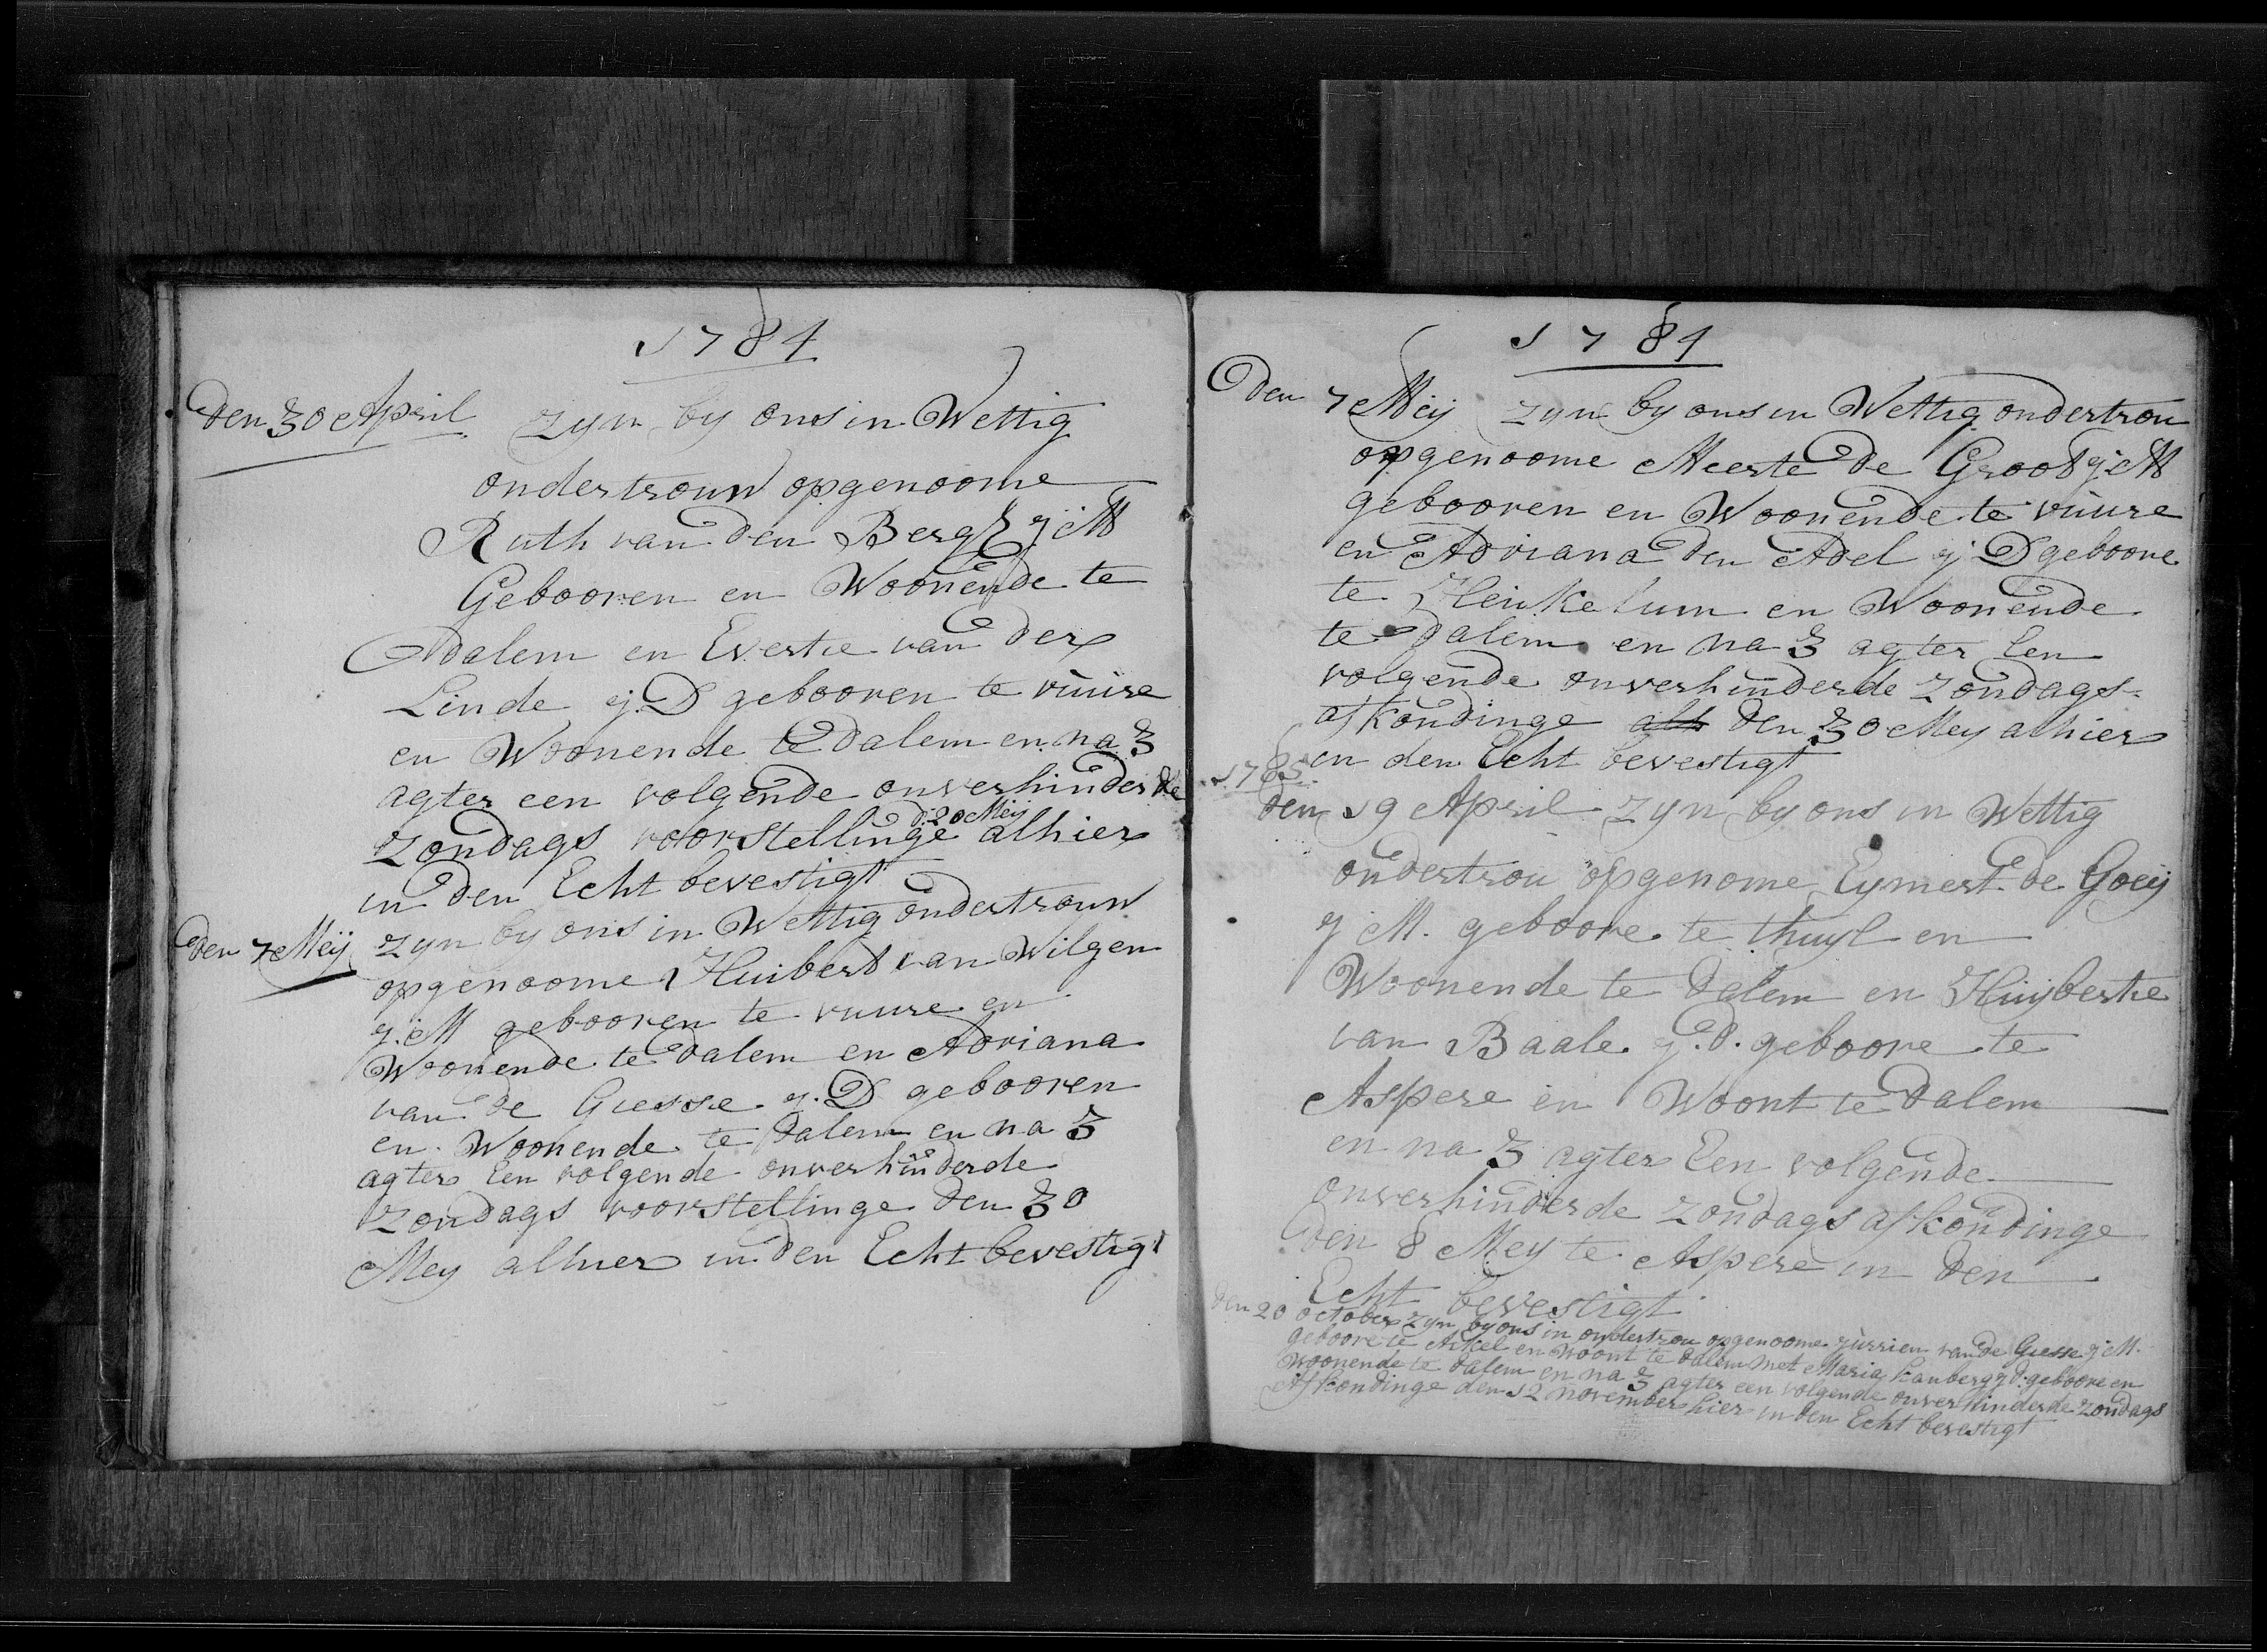 1784
Den 30 April zyn by ons in Wettig
ondertrouw opgenoome
Ruth van den Bergh j M
Gebooren en Woonende te
Dalem en Evertie van Der
Linde j. D gebooren te vuure
en Woonende te Dalem en na 3
agter een volgende onverhinderde
d: 20 Meij
Zondags voorstellinge alhier
in Den Echt bevestigt
Den 7 Meij zyn by ons in Wettig ondertrouw
opgenoome Huibert van Wilgen
j. M gebooren te vuure en
Woonende te Dalem en Adriana
van de Giesse j. D gebooren
en Woonende te Dalem en na 3
agter Een volgende onverhinderde
Zondags voorstellinge Den 30
Mey alhier in Den Echt bevestigt
1784
Den 7 Meij zyn by ons in Wettig ondertrou
opgenoome Meerte De Groot j M
gebooren en Woonende te vuure
en Adriana Den Adel j D geboore
te Heukelum en Woonende
te Dalem en na 3 agter Een
volgende onverhinderde Zondags-
afkondinge alh Den 30 Mey alhier
in den Echt bevestigt
1785
Den 19 April zyn by ons in Wettig
ondertrou opgenome Eymert De Goeij
j M. geboore te thuyl en
Woonende te Dalem en Huybertie
van Baale j. D. geboore te
Aspere en Woont te Dalem
en na 3 agter Een volgende
onverhinderde Zondags afkondinge
Den 8 Mey te Aspere in Den
Echt bevestigt
Den 20 October zyn by ons in ondertrou opgenoome jurrien van de Giesse j M.
geboore te Arkel en Woont te Dalem met Maria kanberg j D: geboore en
Woonende te Dalem en na 3 agter een volgende onverhinderde Zondags
Afkondinge den 12 november hier in Den Echt bevestigt